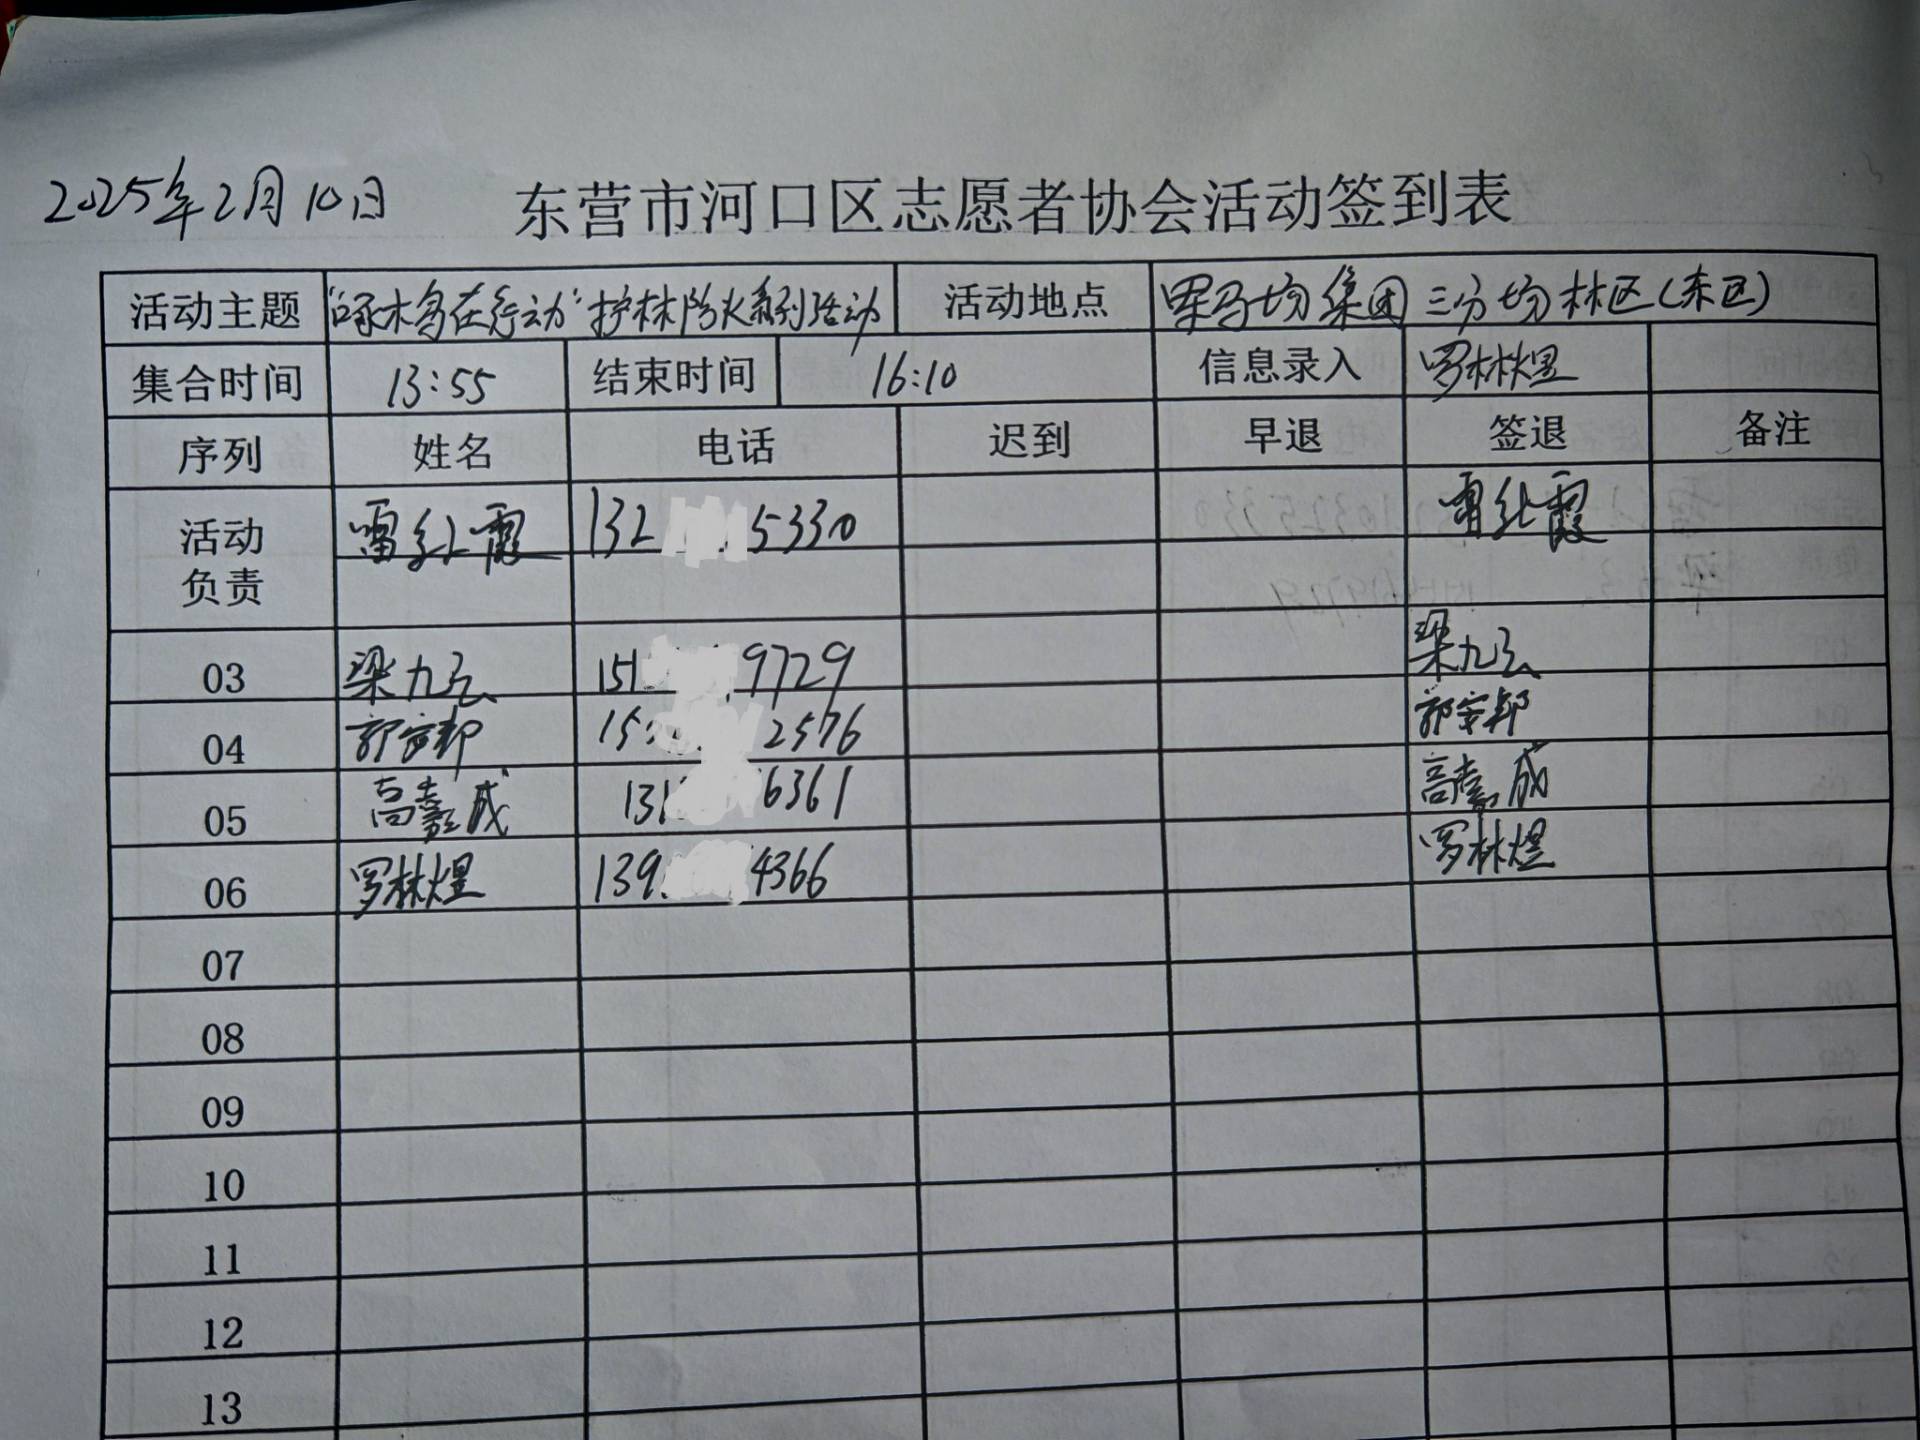 2025年2月10日 东营市河口区志愿者协会活动签到表
活动主题 "啄木鸟在行动"护林防火系列活动 活动地点 军马场集团三分场林区(东区)
集合时间 13:55 结束时间 16:10 信息录入 罗林煜
序列 姓名 电话 迟到 早退 签退 备注
活动 雷红霞 132 5330 雷红霞
负责
03 梁九弘 151 9729 梁九弘
04 郭安邦 15 2576 郭安邦
05 高嘉成 131 6361 高嘉成
06 罗林煜 139 4366 罗林煜
07
08
09
10
11
12
13